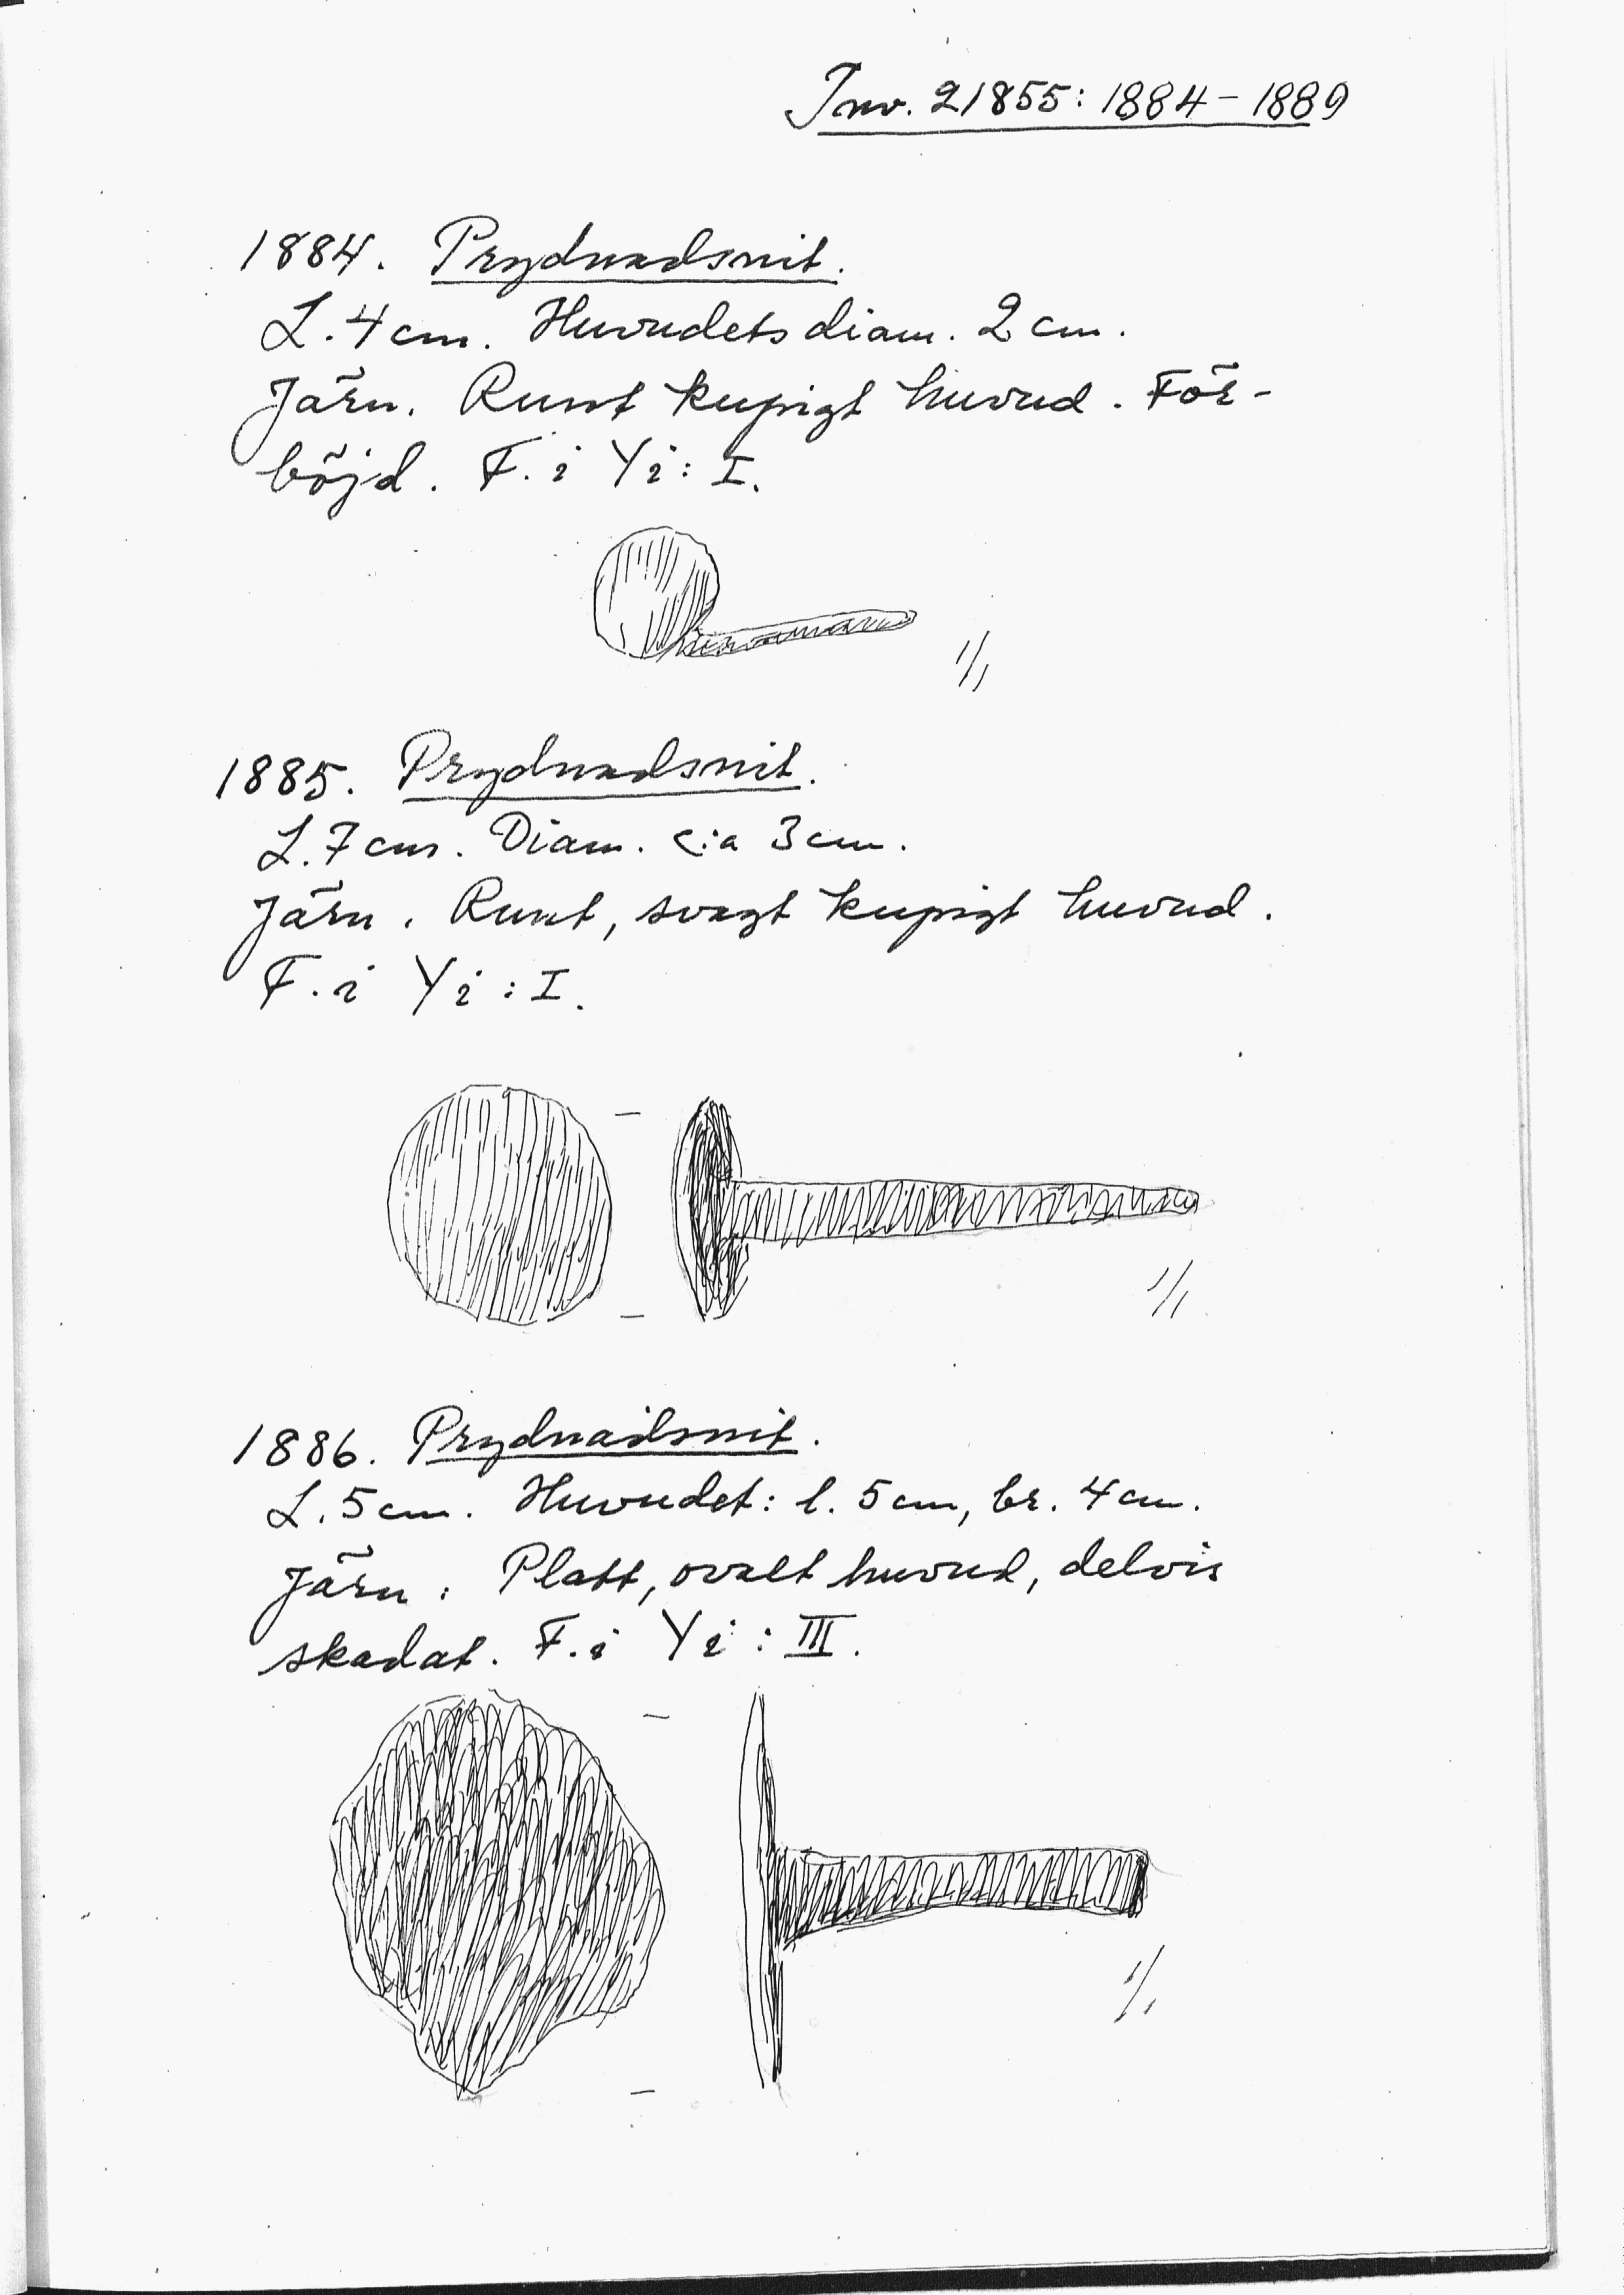 Inv. 21855: 1884-1889
1884. Prydnadsnit.
L. 4 cm. Huvudets diam. 2 cm.
Järn. Runt kupigt huvud. För-
böjd. F. i Yi: I.
1/1
1885. Prydnadsnit.
L. 7 cm. Diam. c:a 3 cm.
Järn. Runt, svagt kupigt huvud.
F. i Yi: I.
1/1
1886. Prydnadsnit.
L. 5 cm. Huvudet: l. 5 cm, br. 4 cm.
Järn. Platt, ovalt huvud, delvis
skadat. F. i Yi: III.
1/1